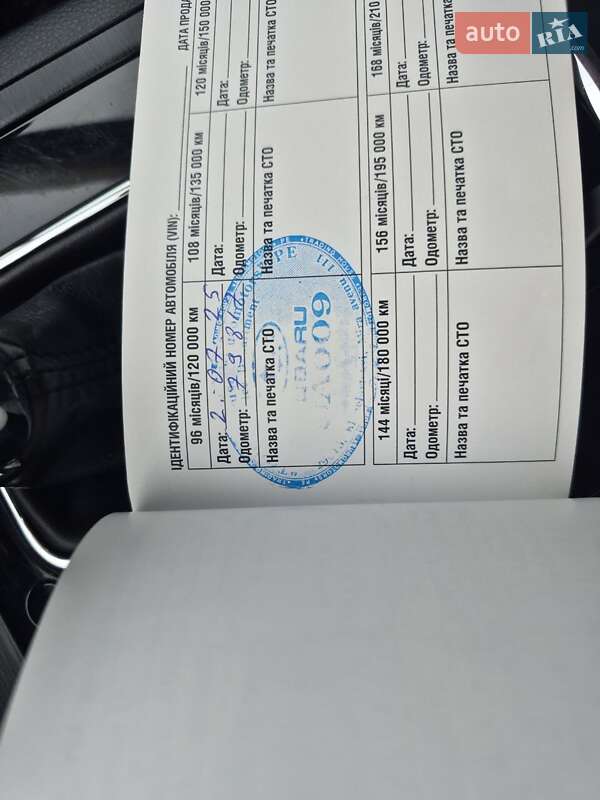 ІДЕНТИФІКАЦІЙНИЙ НОМЕР АВТОМОБІЛЯ (VIN):
ДАТА ПРОДА
96 місяців/120 000 км
Дата: 2.07.25
Одометр: 79817
Назва та печатка СТО
108 місяців/135 000 км
Дата:
Одометр:
Назва та печатка СТО
120 місяців/150 000
Дата:
Одометр:
Назва та печатка СТО
144 місяці/180 000 км
Дата:
Одометр:
Назва та печатка СТО
156 місяців/195 000 км
Дата:
Одометр:
Назва та печатка СТО
168 місяців/210
Дата:
Одометр:
Назва та печатка
UA009
auto RIA.com